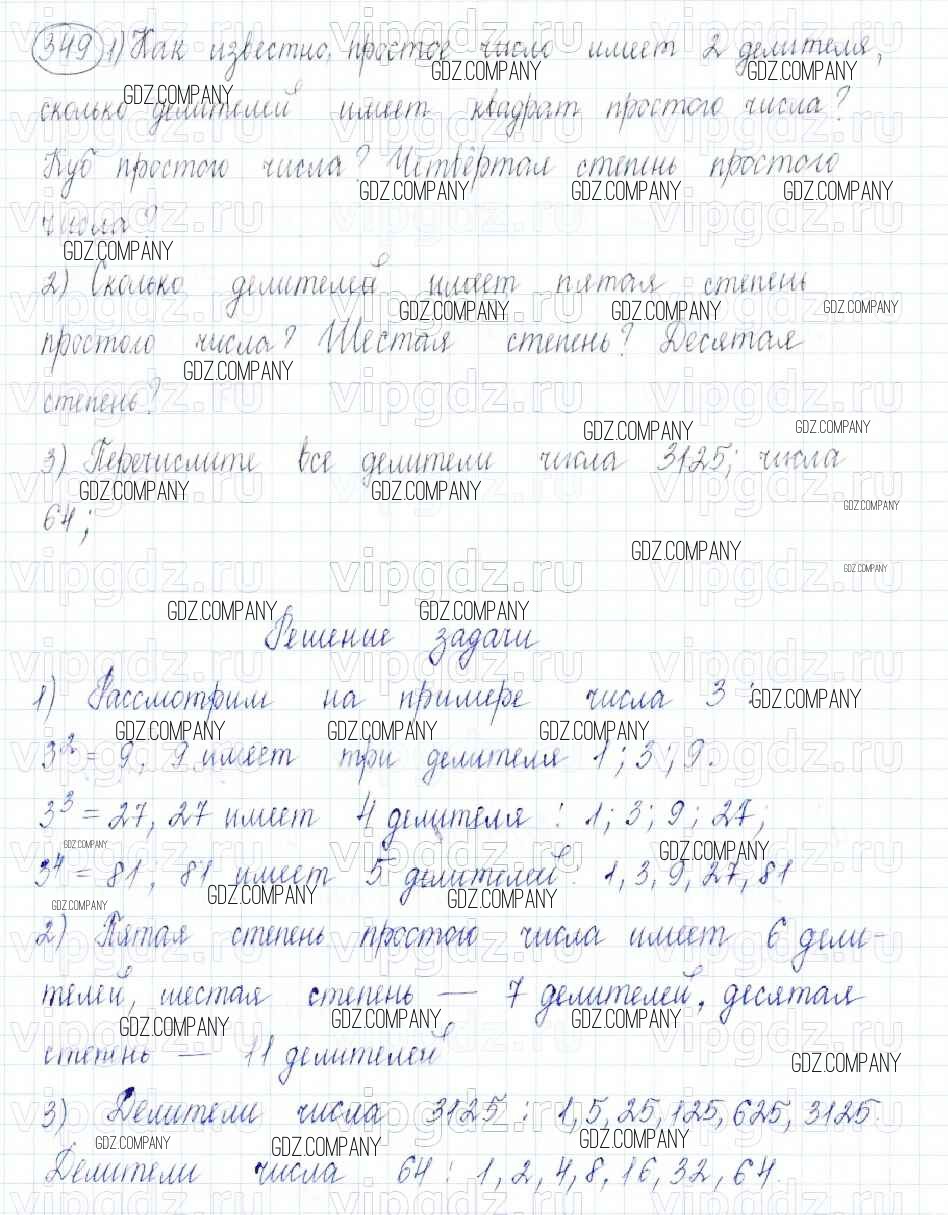 349 1) Как известно, простое число имеет 2 делителя,
сколько делителей имеет квадрат простого числа?
Куб простого числа? Четвёртая степень простого
числа?
2) Сколько делителей имеет пятая степень
простого числа? Шестая степень? Десятая
степень?
3) Перечислите все делители числа 3125; числа
64;
Решение задачи
1) Рассмотрим на примере числа 3:
3² = 9, 9 имеет три делителя 1; 3; 9.
3³ = 27, 27 имеет 4 делителя: 1; 3; 9; 27;
3⁴ = 81, 81 имеет 5 делителей: 1, 3, 9, 27, 81
2) Пятая степень простого числа имеет 6 дели-
телей, шестая степень — 7 делителей, десятая
степень — 11 делителей
3) Делители числа 3125: 1, 5, 25, 125, 625, 3125.
Делители числа 64: 1, 2, 4, 8, 16, 32, 64.
GDZ.COMPANY
vipgdz.ru